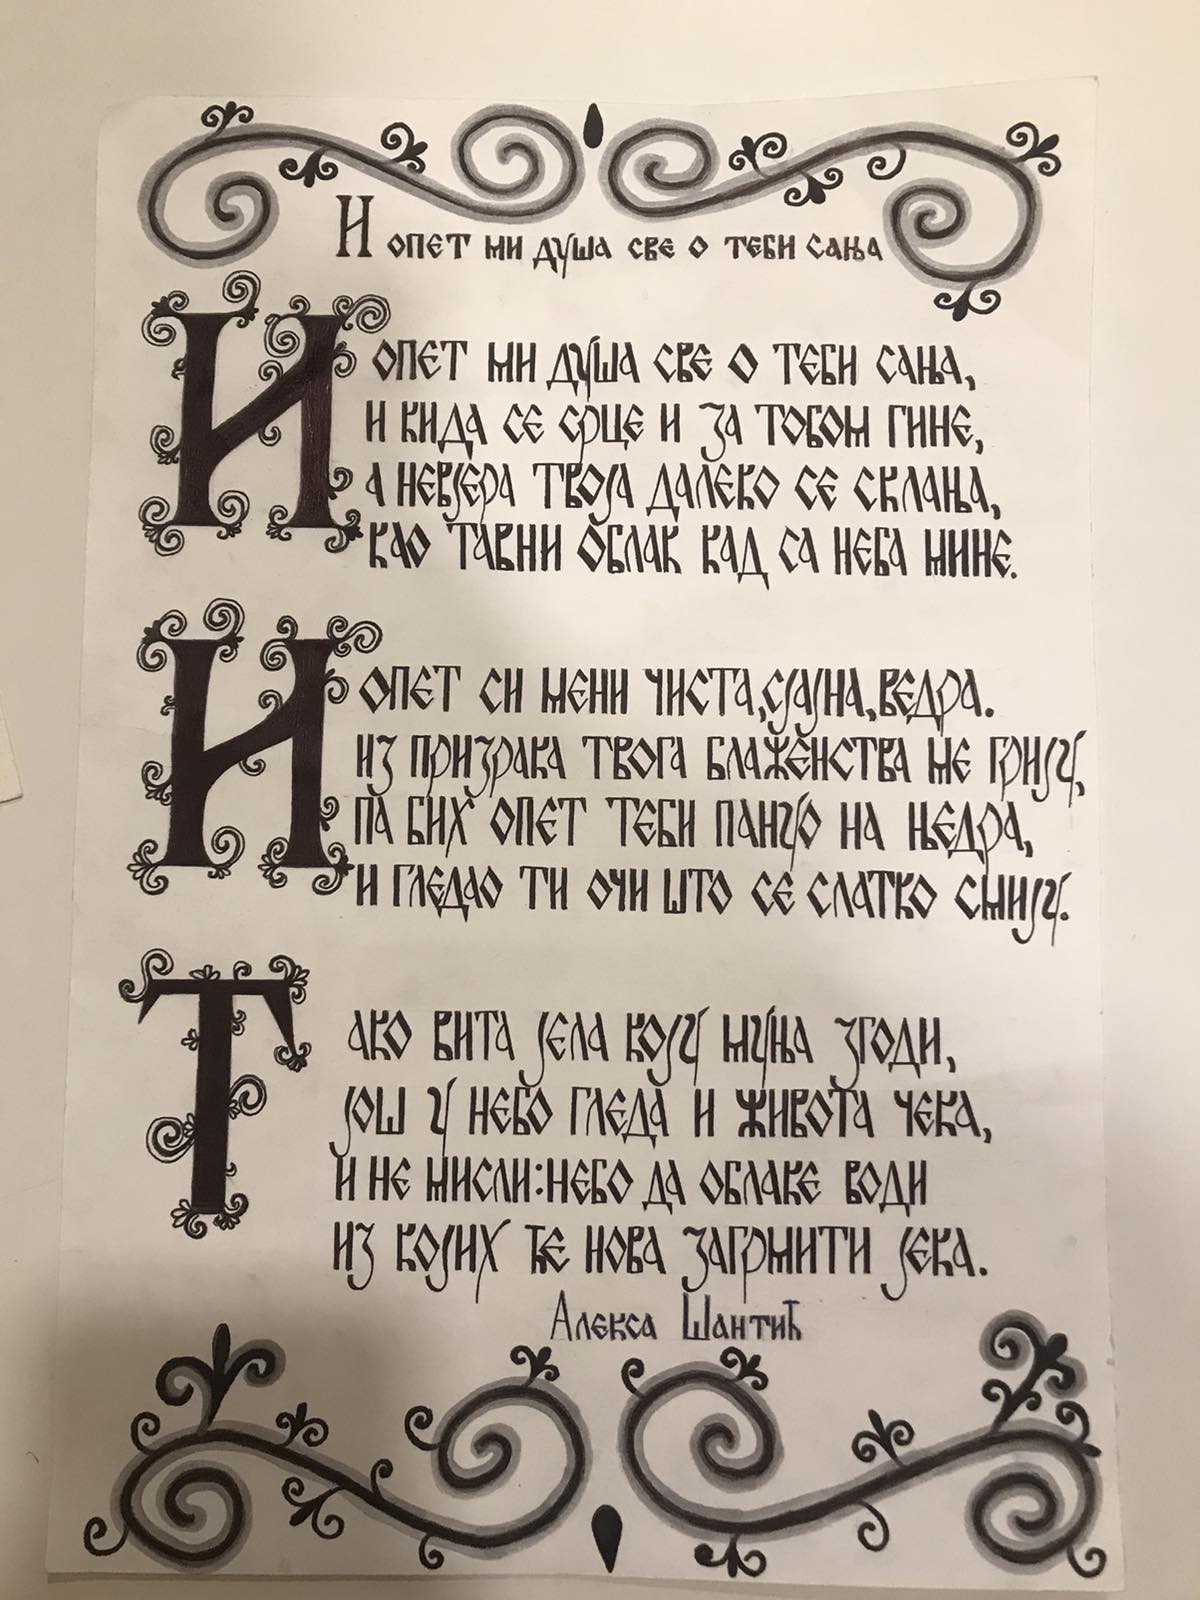 И опет ми душа све о теби сања
И опет ми душа све о теби сања,
и кида се срце и за тобом гине,
а невјера твоја далеко се склања,
као тавни облак кад са неба мине.
И опет си мени чиста, сјајна, ведра.
из призрака твога блаженства ме грију,
па бих опет теби пануо на њедра,
и гледао ти очи што се слатко смију.
Тако вита јела коју муња згоди,
још у небо гледа и живота чека,
и не мисли: небо да облаке води
из којих ће нова загрмити јека.
Алекса Шантић